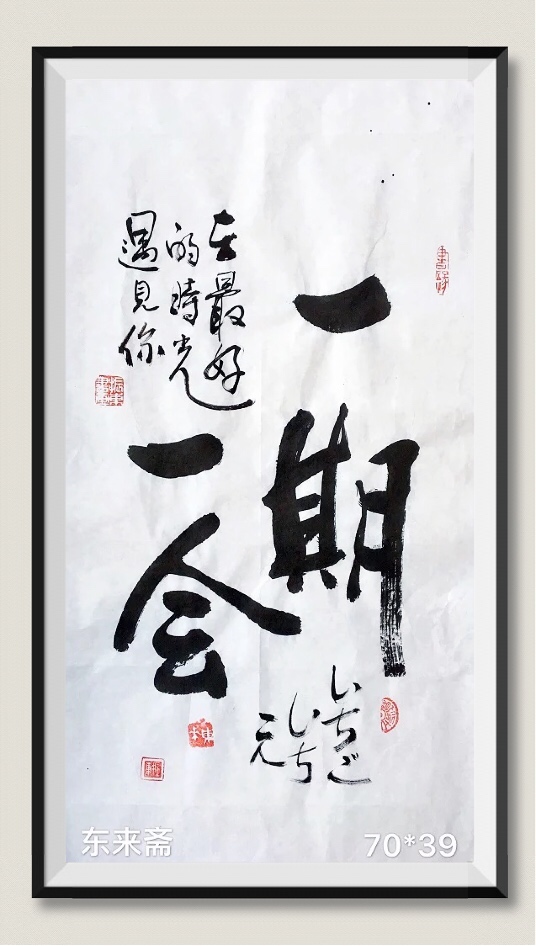 一期
一会
いちご
いち
え
在最好
的時光
遇見你
东来斋
70*39